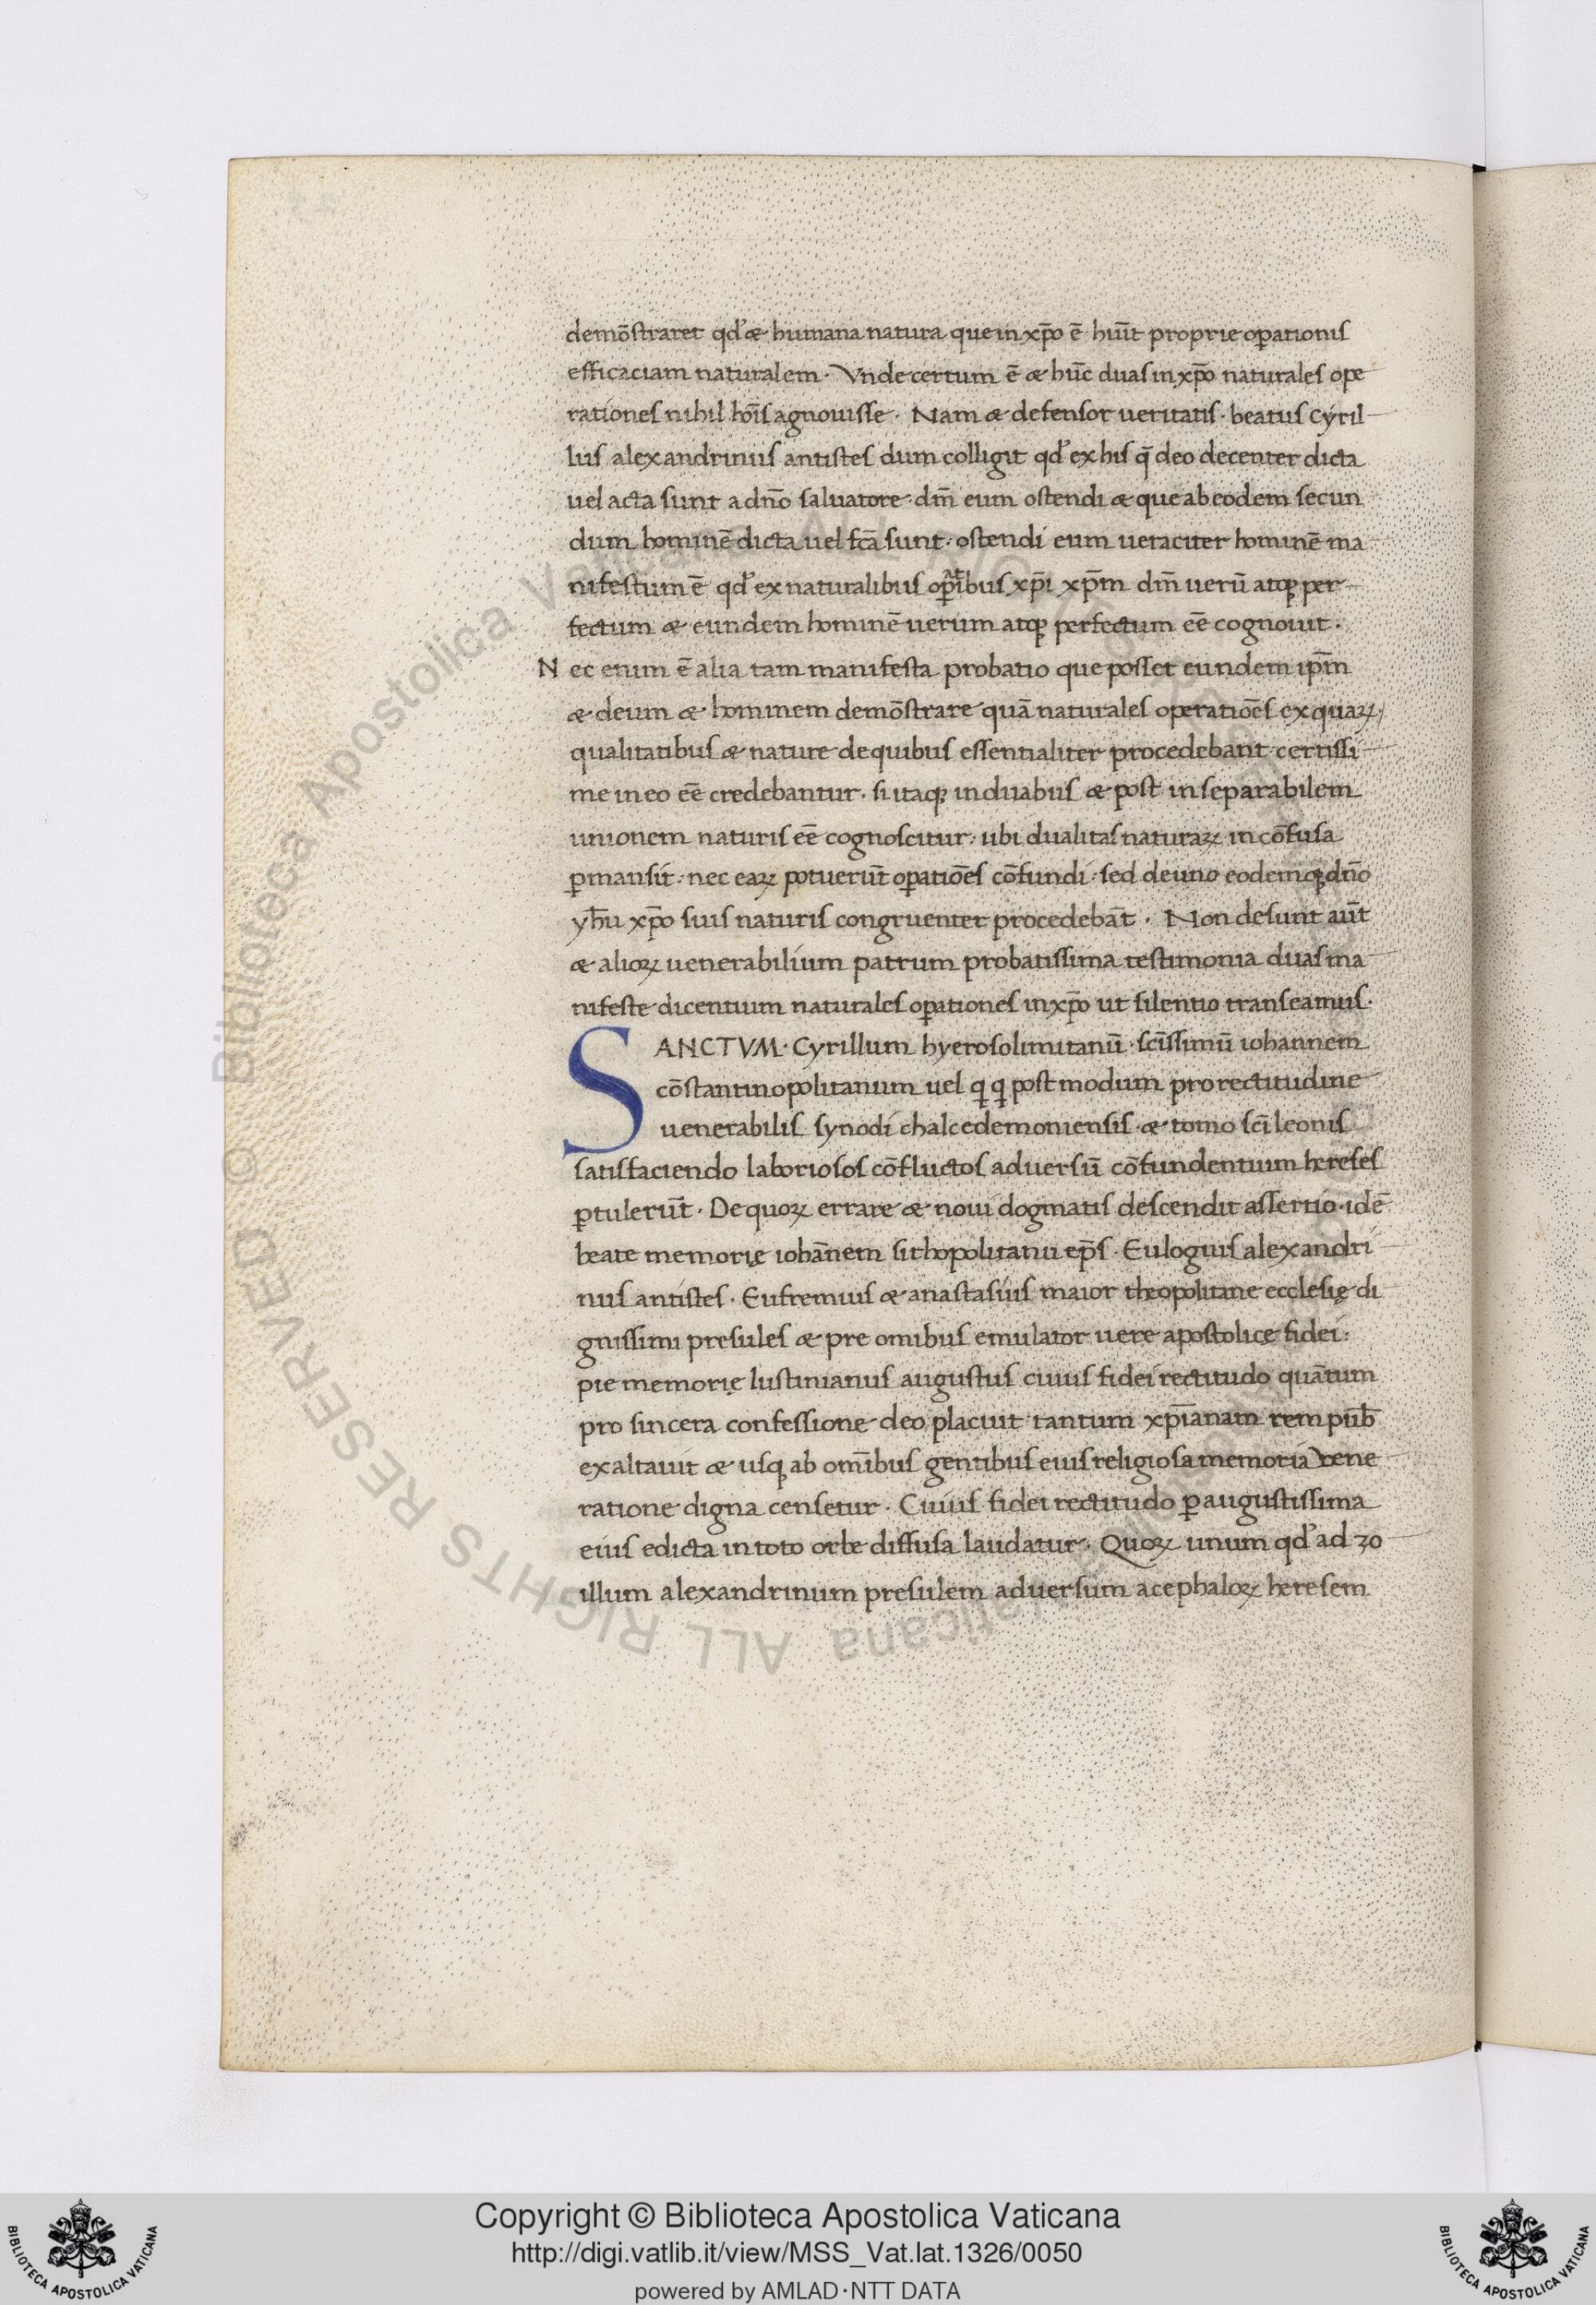 demōstraret qđ æ humana natura que in xp̄o ē hiūt proprie oꝑationis
efficaciam naturalem · Vnde certum ē æ hūc duas in xp̄o naturales ope
rationes nihil hoīs agnouisse · Nam æ defensor ueritatis · beatus Cyril
lus alexandrinus antistes dum colligit qđ ex his q̄ deo decenter dicta
uel acta sunt a dn̄o saluatore · dm̄ eum ostendi æ que ab eodem secun
dum hominē dicta uel fc̄a sunt · ostendi eum ueraciter hominē ma
nifestum ē qđ ex naturalibus oꝑatībus xp̄i xp̄m dm̄ uerū atqꝫ per
fectum æ eundem hominē uerum atqꝫ perfectum eē cognouit ·
Nec enim ē alia tam manifesta probatio que posset eundem ip̄m
æ deum æ hominem demōstrare quā naturales operatiōes ex quaꝝ
qualitatibus æ nature de quibus essentialiter procedebant · certissi
me in eo eē credebantur · si itaqꝫ in duabus æ post inseparabilem
unionem naturis eē cognoscitur · ubi dualitas naturaꝝ incōfusa
ꝑmansit · nec eaꝝ potuerūt oꝑatiōes cōfundi · sed de uno eodemqꝫ dn̄o
yh̄u xp̄o suis naturis congruenter procedebāt · Non desunt aūt
æ alioꝝ uenerabilium patrum probatissima testimonia duas ma
nifeste dicentium naturales oꝑationes in xp̄o ut silentio transeamus ·
SANCTVM · Cyrillum hyerosolimitanū · sc̄issimū iohannem
cōstantinopolitanum uel qi qi postmodum pro rectitudine
uenerabilis synodi chalcedemoniensis · æ tomo sc̄i leonis
satisfaciendo laboriosos cōfluctos aduersū cōfundentium hereses
ꝑtulerūt · De quoꝝ errare æ noui dogmatis descendit assertio · idē
beate memorię iohānem sithopolitanu ep̄s · Eulogius alexandri
nus antistes · Eufremius æ anastasius maior theopolitane ecclesię di
gnissimi presules æ pre omibus emulator uere apostolicę fidei :
pie memorię Iustinianus augustus cuius fidei rectitudo quātum
pro sincera confessione deo placuit tantum xp̄ianam rem pub̄
exaltauit æ usqꝫ ab om̄ibus gentibus eius religiosa memoria uene
ratione digna censetur · Cuius fidei rectitudo ꝑ augustissima
eius edicta in toto orbe diffusa laudatur · Quoꝝ unum qđ ad zo
illum alexandrinum presulem aduersum acephaloꝝ heresem
Copyright © Biblioteca Apostolica Vaticana
http://digi.vatlib.it/view/MSS_Vat.lat.1326/0050
powered by AMLAD·NTT DATA
BIBLIOTECA APOSTOLICA VATICANA
BIBLIOTECA APOSTOLICA VATICANA
© Biblioteca Apostolica Vaticana ALL RIGHTS RESERVED